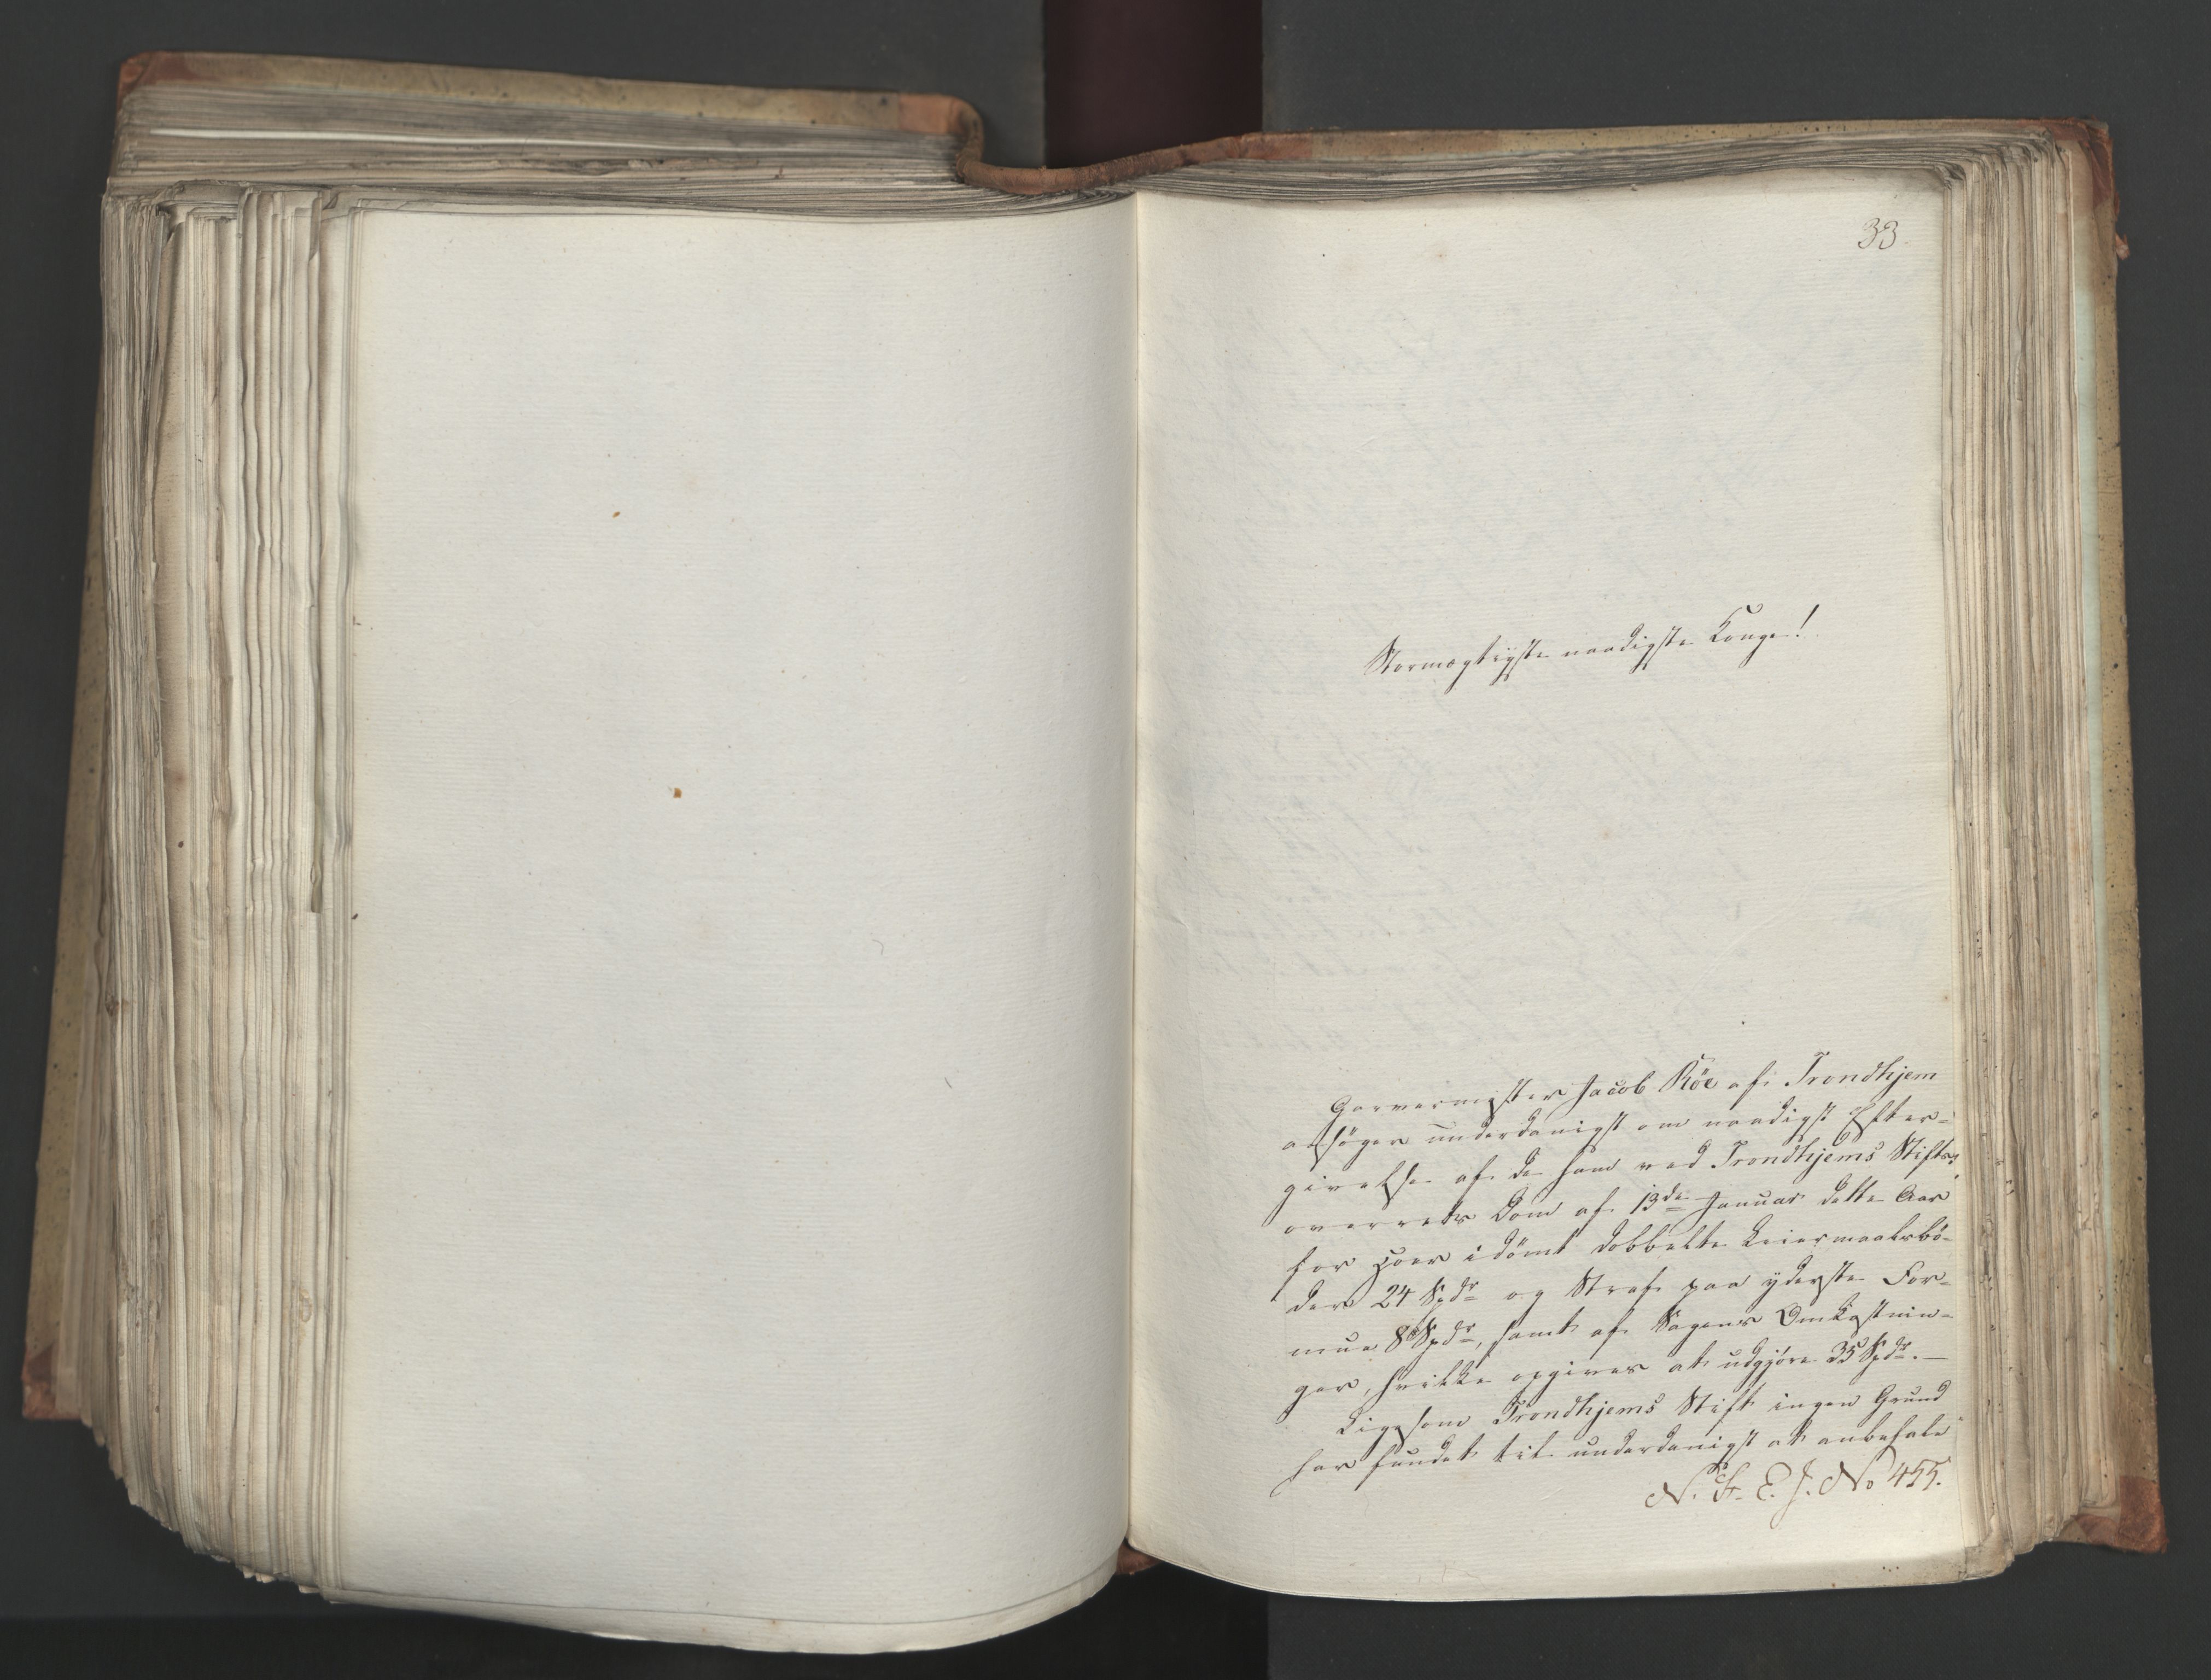 33.
Stormægtigste naadigste Konge!
Garvermester Jacob Röe af Trondhjem
ansöger underdanigst om naadigst Efter-
givelse af de ham ved Trondhjems Stifts-
overrets Dom af 13de Januar dette Aar
for Hoer idömt dobbelte Leiermaalsbö-
der 24 Spdr og Straf paa yderste For-
mue 8 Spdr, samt af Sagens Omkostnin-
ger, hvilke opgives at udgjöre 35 Spdr. —
Ligesom Trondhjems Stift ingen Grund
har fundet til underdanigst at anbefale
N. S. E. J. No 455.